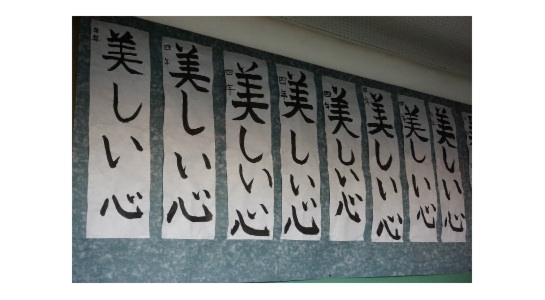 美しい心
四年
美しい心
四年
美しい心
四年
美しい心
四年
美しい心
美しい心
美しい心
美しい心